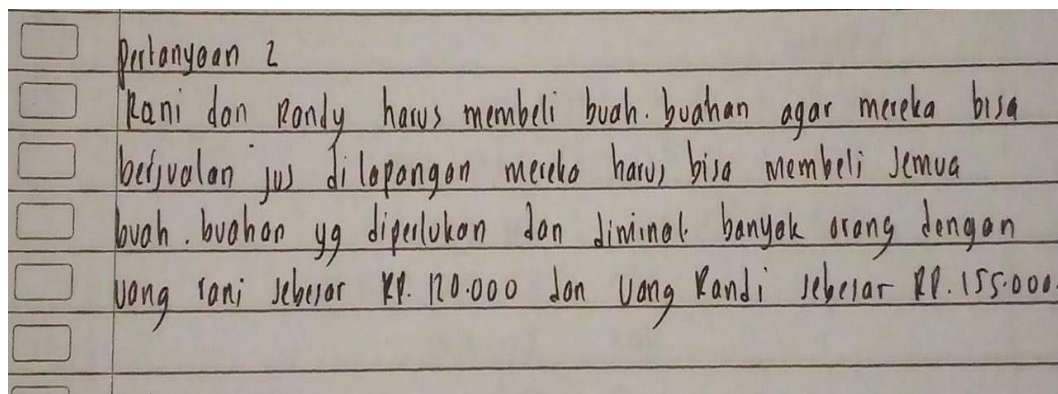 Pertanyaan 2
Rani dan Randy harus membeli buah. buahan agar mereka bisa
berjualan jus di lapangan mereka harus bisa membeli semua
buah. buahan yg diperlukan dan diminat banyak orang dengan
uang rani sebesar RP. 120.000 dan uang Randi sebesar RP. 155.000.